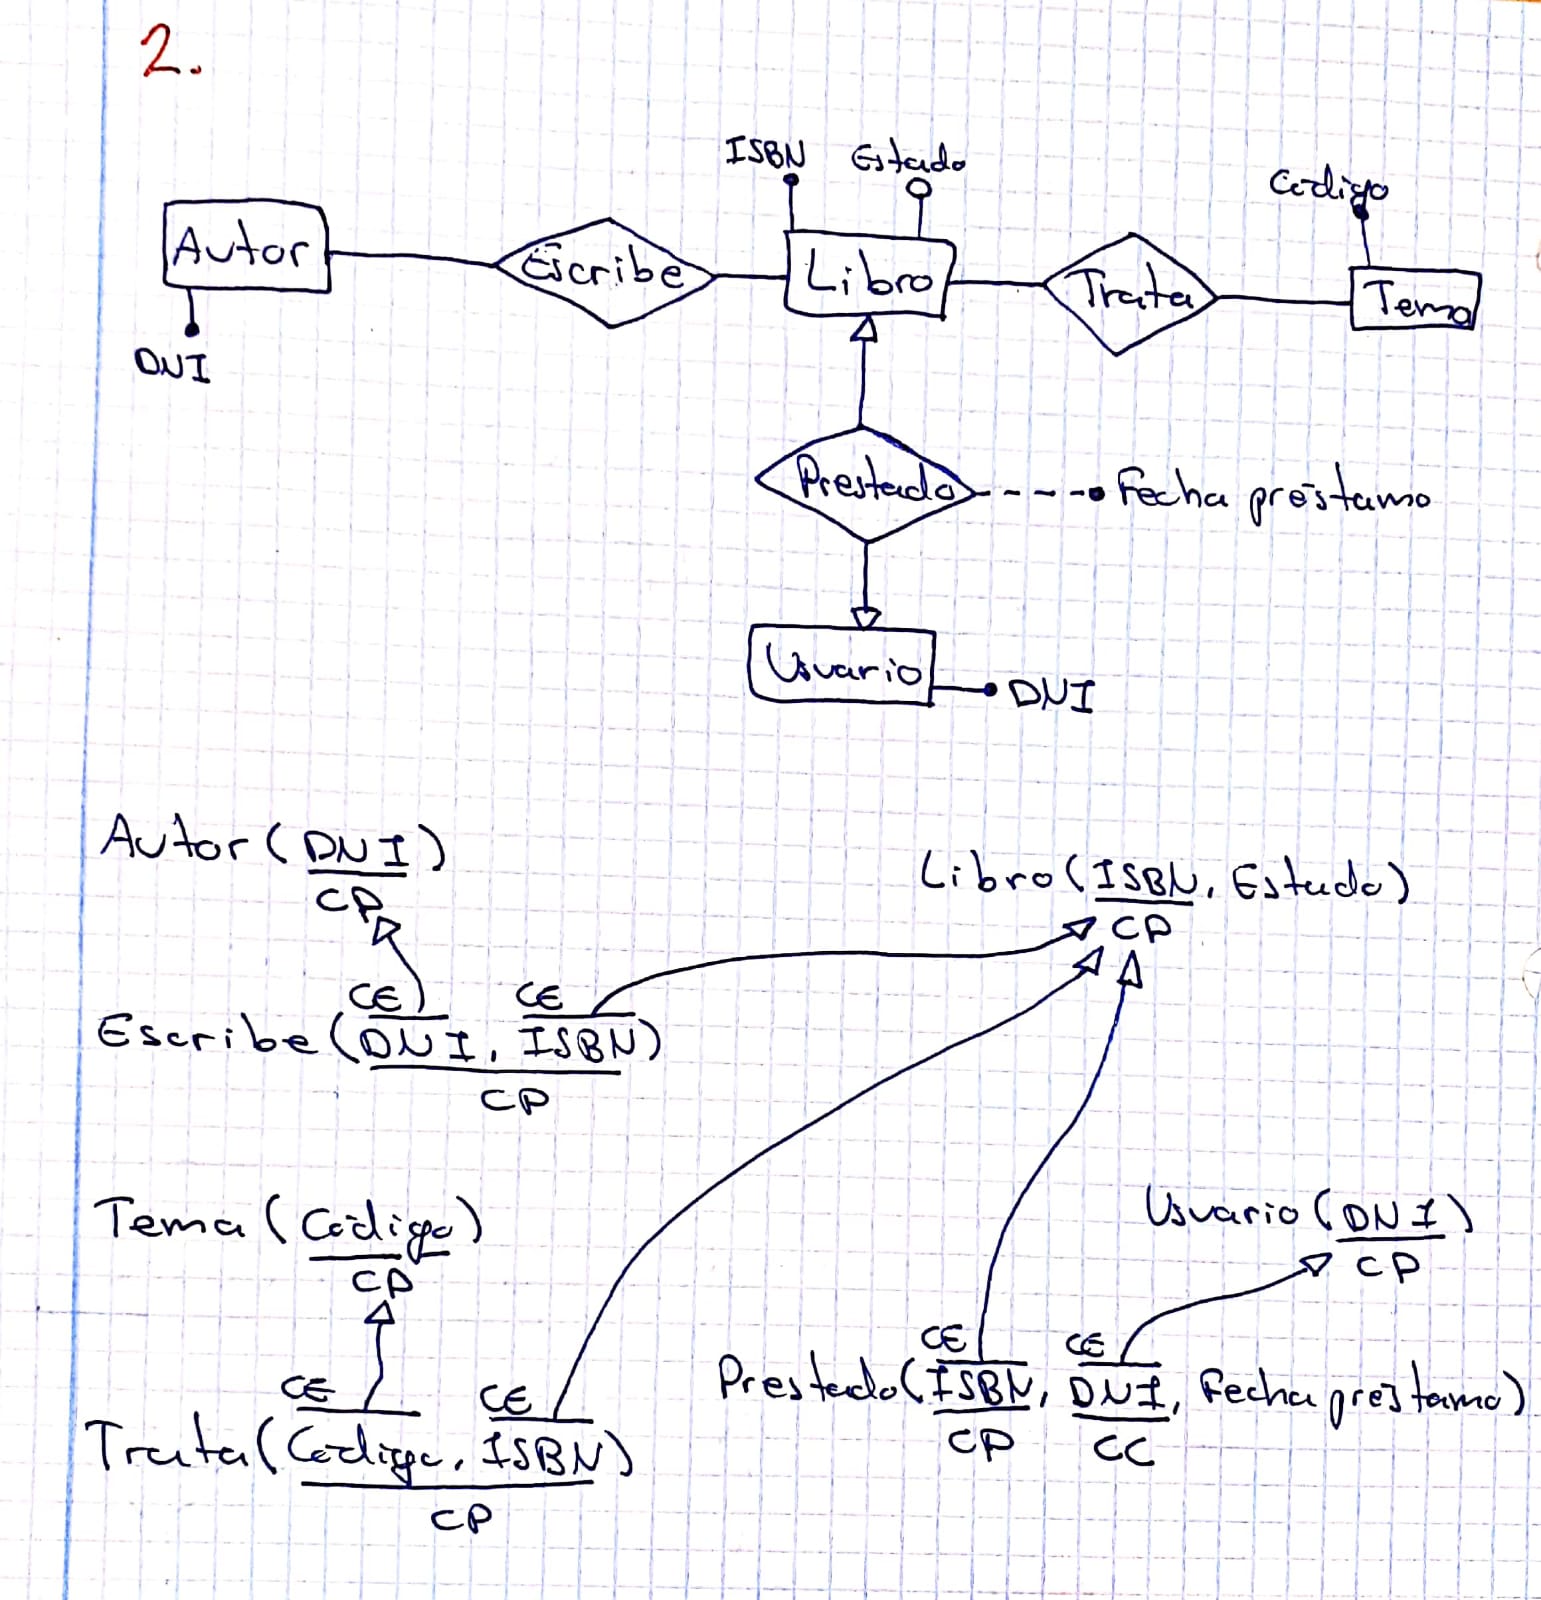 2.
ISBN Estado
Codigo
Autor Escribe Libro Trata Tema
DNI
Prestado Fecha préstamo
Usuario DNI
Autor (DNI)
CP
Libro (ISBN, Estado)
CP
CE CE
Escribe (DNI, ISBN)
CP
Tema (Código)
CP
Usuario (DNI)
CP
CE CE
Prestado (ISBN, DNI, Fecha préstamo)
CP CC
CE CE
Trata (Codigo, ISBN)
CP